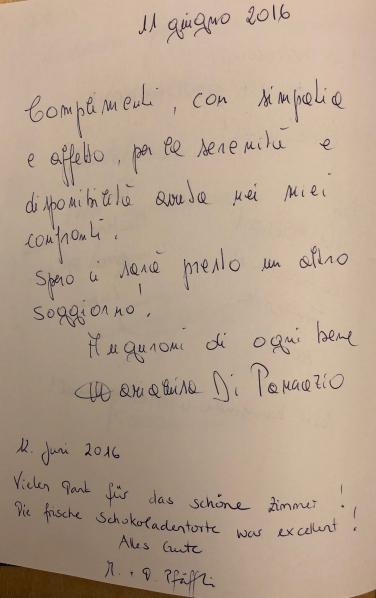 11 giugno 2016
Complimenti, con simpatia
e affetto, per la serenità e
disponibilità avuta nei miei
confronti.
Spero ci sarà presto un altro
soggiorno!
Auguroni di ogni bene
Di Pancrazio
12. Juni 2016
Vielen Dank für das schöne Zimmer!
Die frische Schokoladentorte was excellent!
Alles Gute